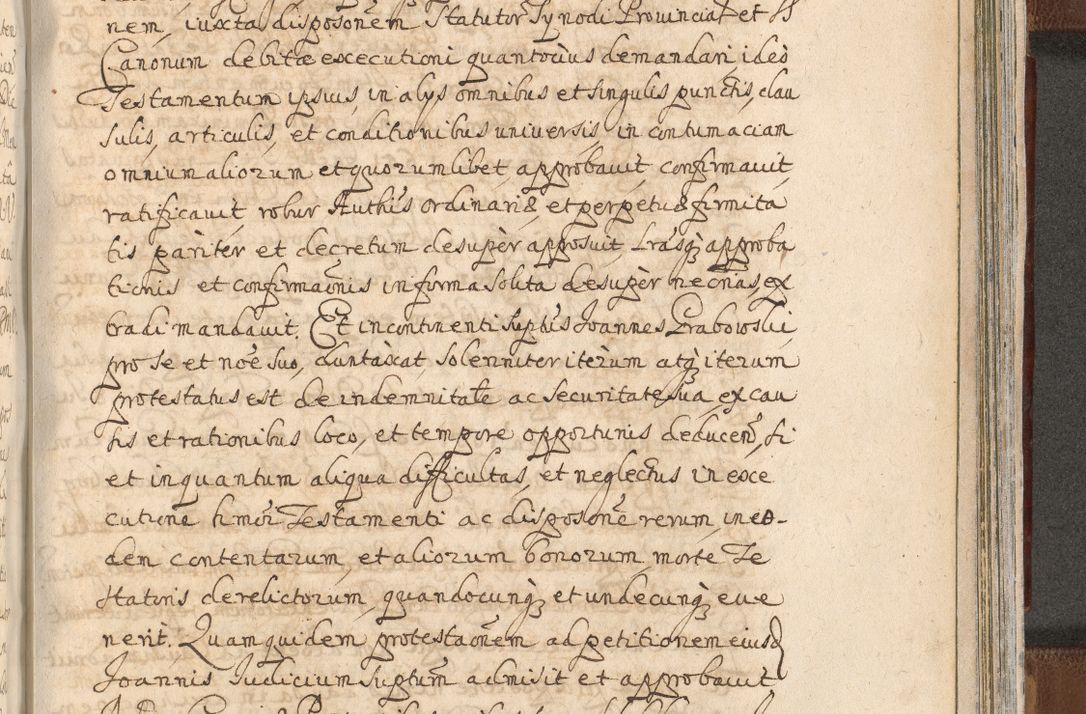 nem, iuxta disposonem Statutor Synodi Prouincial et SS
Canonum debitæ execcutioni quantocius demandari ideò
Testamentum ipsius, in alys omnibus et singulis punctis, clau
sulis, articulis, et conditionibus uniuersis, in contumaciam
omnium aliorum et quorumlibet, approbauit, confirmauit,
ratificauit, robur Authis ordinariæ, et perpetuæ firmita
tis pariter et decretum desuper apposuit, Lrasq approba
tionis et confirmaonis in forma solita desuper necrias, ex
tradi mandauit. Et incontinenti suptus Joannes Grabowski,
pro se et noe suo, duntaxat, solenniter iterùm atq iterum
protestatus est de indemnitate ac securitate sua, ex cau
sis et rationibus loco, et tempore opportunis deducen, si
et inquantum aliqua difficultas, et neglectus in exe
cutione hmoi Testamenti ac disposone rerum, in eo-
dem contentarum, et aliorum bonorum, morte Te
statoris derelictorum, quandocunq et undecunq eue
nerit. Quamquidem protestaonem ad petitionem eiusd
Joannis Judicium suptum admisit et approbauit